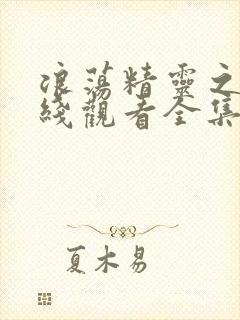 浪蕩精靈之
綫觀看全集
夏木易